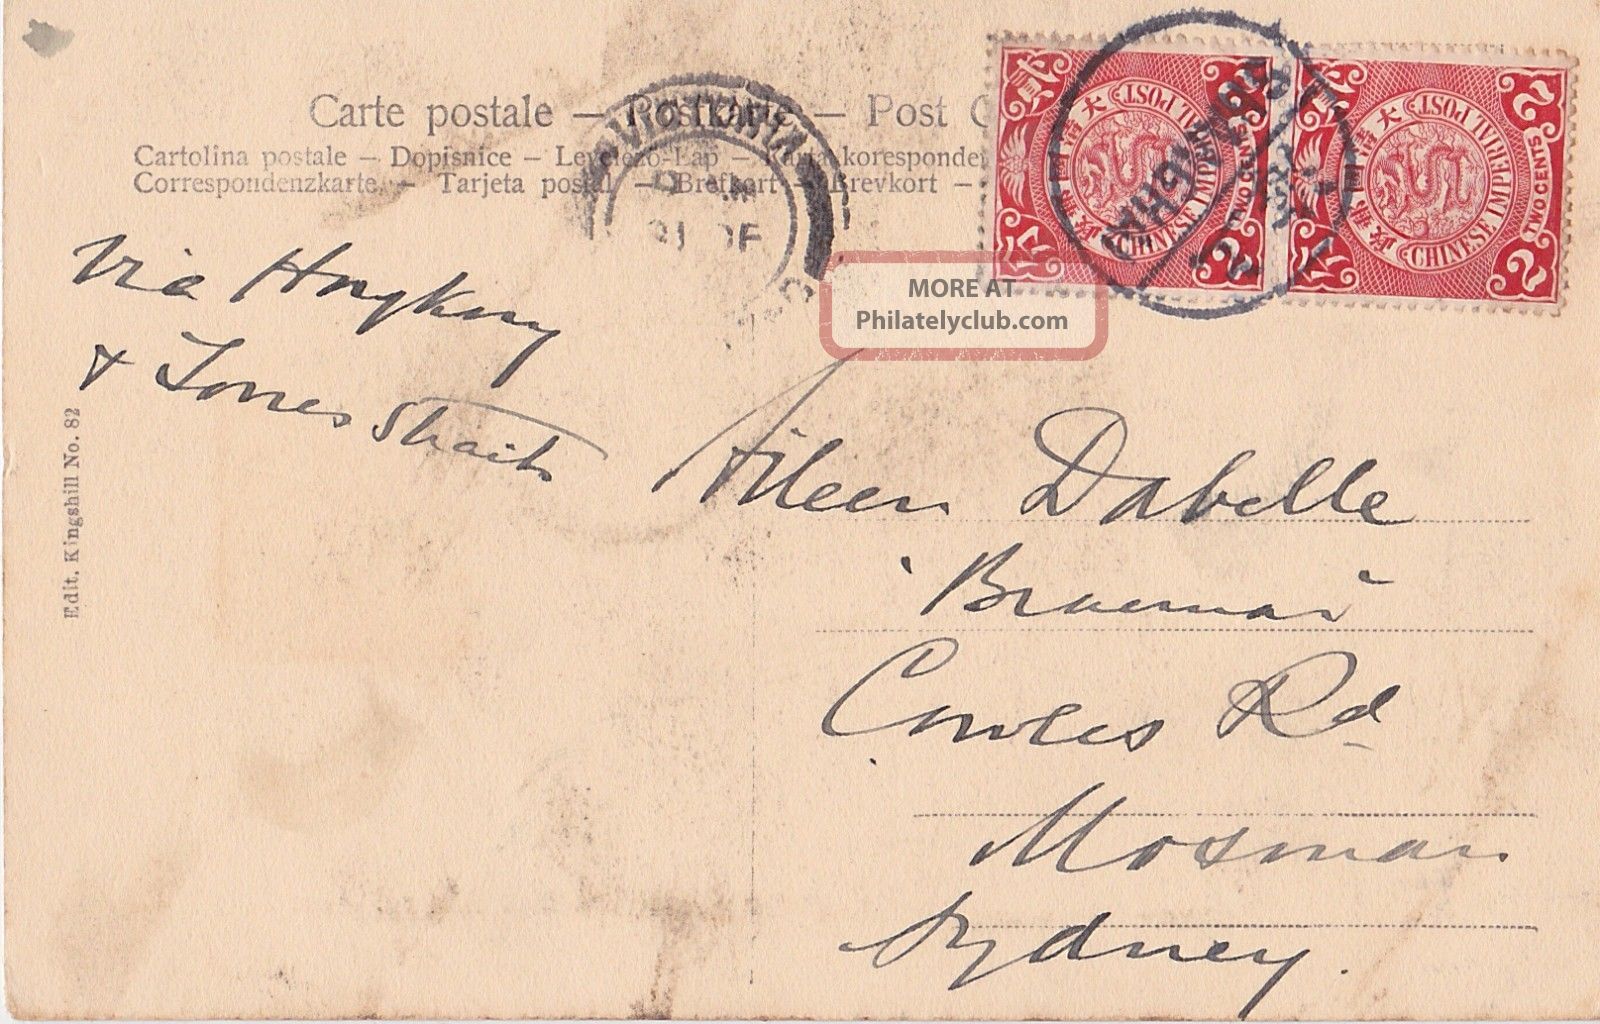 Carte postale – Postkarte – Post C
Cartolina postale – Dopisnice – Levelezo-Lap – Karta korespondен
Correspondenzkarte – Tarjeta postal – Brefkort – Brevkort –
VICTORIA
31 DE
大清
貳
CHINESE IMPERIAL POST
2
TWO CENTS
2
大清
CHINESE IMPERIAL POST
2
TWO CENTS
2
MORE AT
Philatelyclub.com
Via Hongkong
& Torres Straits
Edit. Kingshill No. 82
Aileen Dabelle
Braemar
Cowles Rd
Mosman
Sydney.